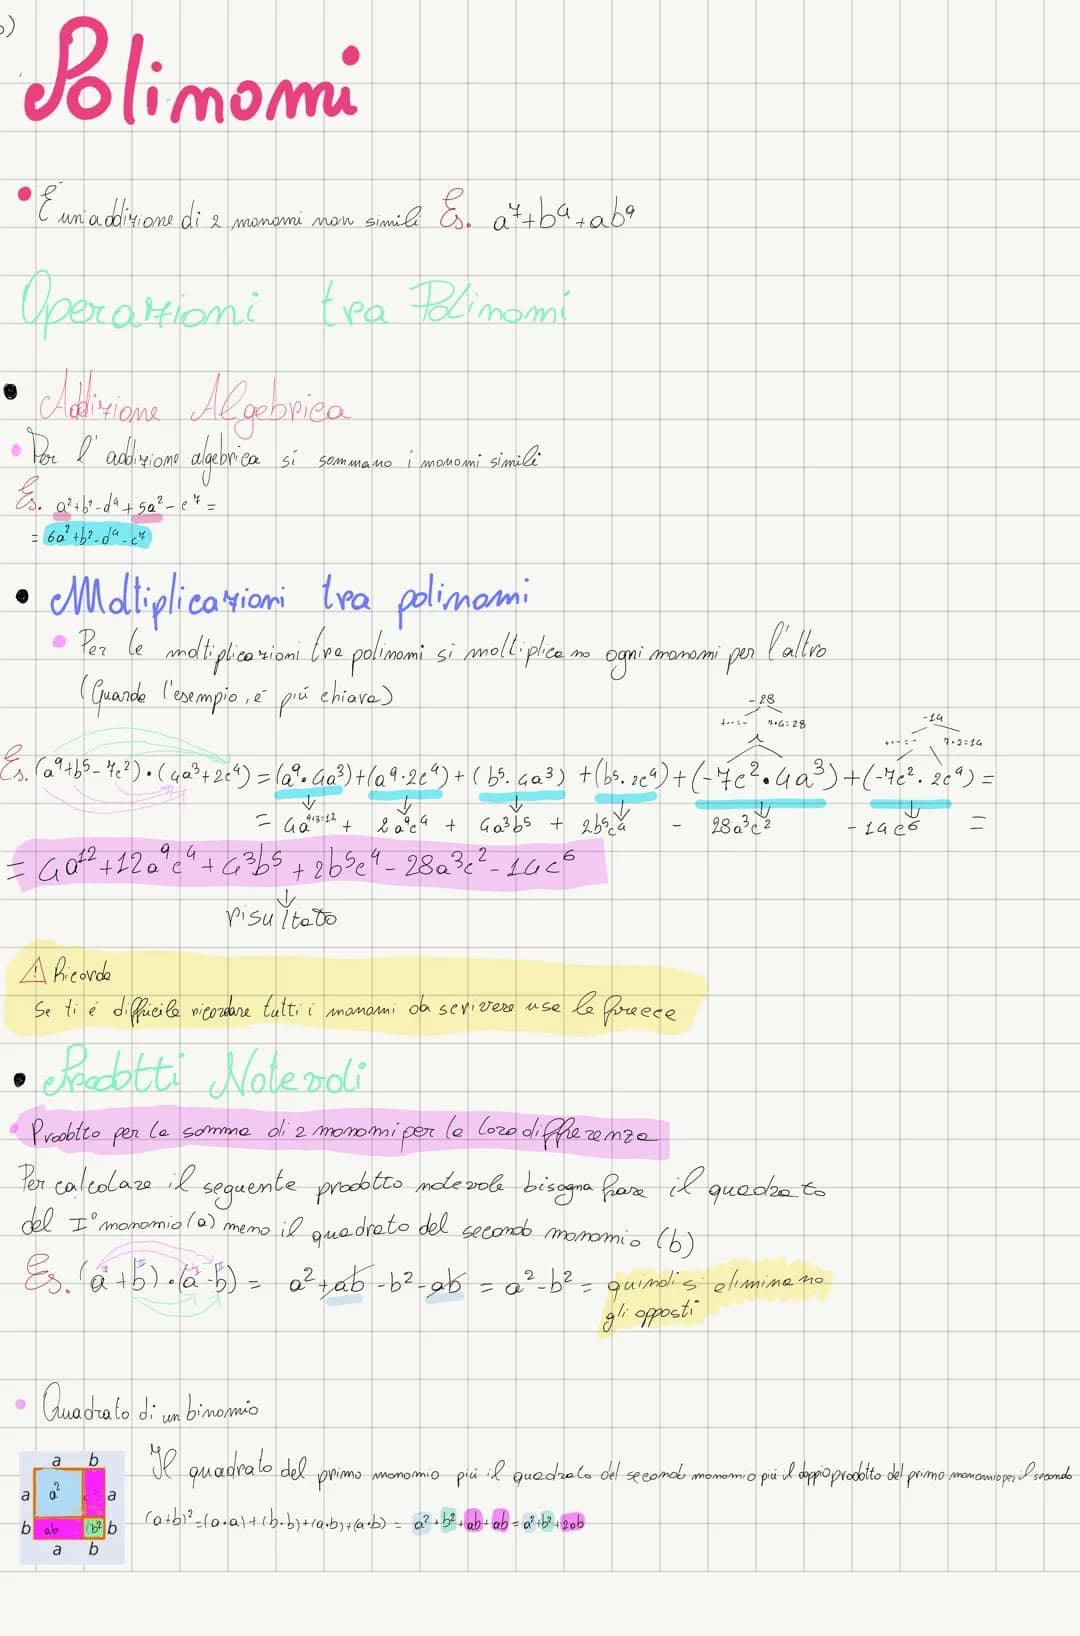 Polinomi
• È un'addizione di 2 monomi non simili Es. a⁷+b⁴+ab⁹
Operazioni tra Polinomi
• Addizione Algebrica
• Per l'addizione algebrica si sommano i monomi simili
Es. a²+b²-d⁴+5a²-c⁷=
= 6a²+b²-d⁴-c⁷
• Moltiplicazioni tra polinomi
• Per le moltiplicazioni tra polinomi si moltiplicano ogni monomi per l'altro
(Guarda l'esempio, è più chiaro)
-28
+·-=- 7·4=28
-14
+·-=- 7·2=14
Es. (a⁹+b⁵-7c²)·(4a³+2c⁴)=(a⁹·4a³)+(a⁹·2c⁴)+(b⁵·4a³)+(b⁵·2c⁴)+(-7c²·4a³)+(-7c²·2c⁴)=
= 4a⁹⁺³⁼¹² + 2a⁹c⁴ + 4a³b⁵ + 2b⁵c⁴ - 28a³c² - 14c⁶ =
= 4a¹²+12a⁹c⁴+4³b⁵+2b⁵c⁴-28a³c²-14c⁶
risultato
⚠ Ricorda
Se ti è difficile ricordare tutti i monomi da scrivere usa le frecce
• Prodotti Notevoli
• Prodotto per la somma di 2 monomi per la loro differenza
Per calcolare il seguente prodotto notevole bisogna fare il quadrato
del I° monomio (a) meno il quadrato del secondo monomio (b)
Es. (a+b)·(a-b) = a²+ab-b²-ab = a²-b² = quindi si eliminano
gli opposti
• Quadrato di un binomio
a b
Il quadrato del primo monomio più il quadrato del secondo monomio più il doppio prodotto del primo monomio per il secondo
a a² a
(a+b)²=(a·a)+(b·b)+(a·b)+(a·b) = a²+b²+ab+ab=a²+b²+2ab
b ab b² b
a b